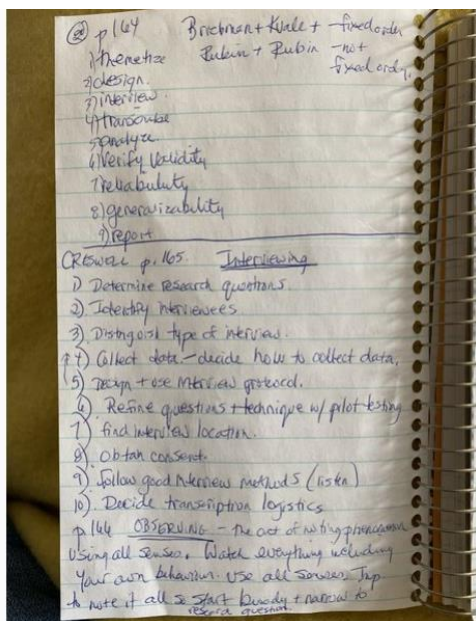 p.164 Brinkman + Kvale + - fixed order
1) themetize Rubin + Rubin - not fixed order.
2) design.
3) interview.
4) transcribe
5) analyze
6) Verify Validity
7) reliability
8) generalizability
9) report
CRESWELL p.165. Interviewing
1) Determine research questions.
2) Identify interviewees
3) Distinguish type of interview.
4) Collect data - decide how to collect data.
5) Design + use interview protocol.
6) Refine questions + technique w/ pilot testing
7) find interview location.
8) Obtain consent.
9) Follow good interview methods (listen)
10) Decide transcription logistics
p.166 OBSERVING - the act of noting phenomenon
using all senses. Watch everything including
your own behaviour. Use all senses. Imp
to note it all so start broady + narrow to
research question.